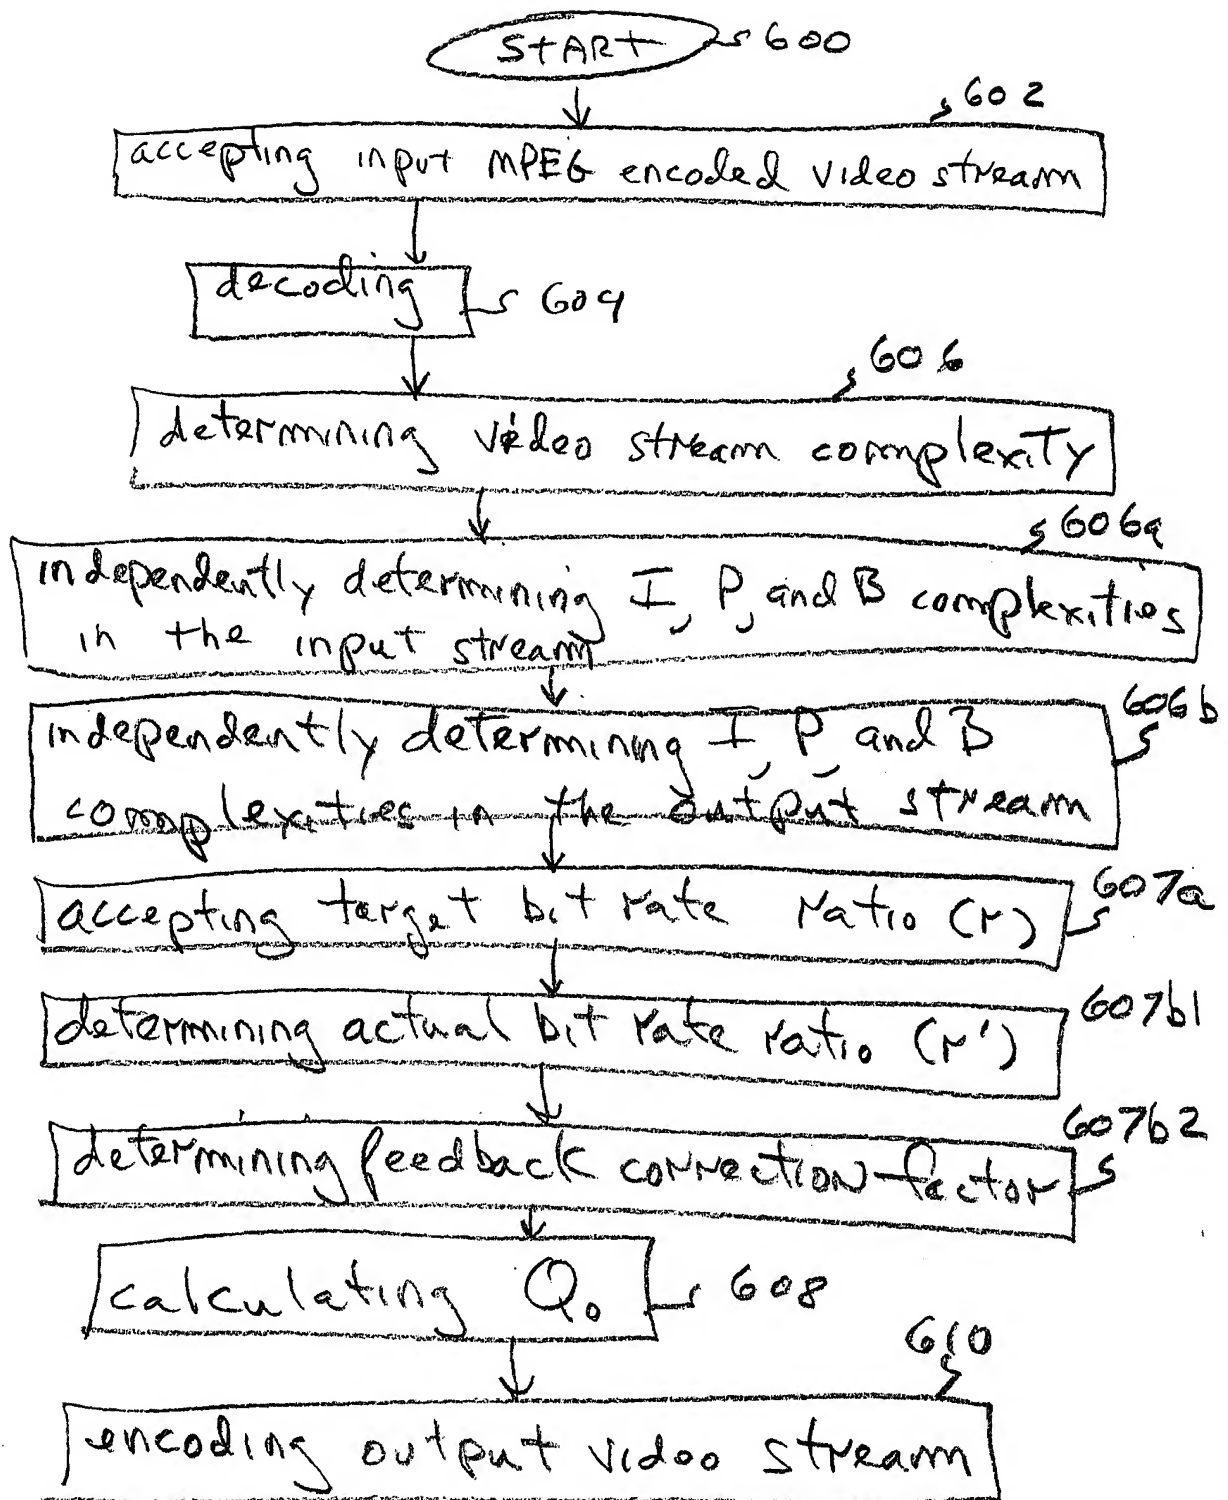 START 600
602
accepting input MPEG encoded video stream
decoding 604
606
determining video stream complexity
606a
independently determining I, P, and B complexities
in the input stream
606b
independently determining I, P, and B
complexities in the output stream
607a
accepting target bit rate ratio (r)
607b1
determining actual bit rate ratio (r')
607b2
determining feedback correction factor
calculating Qo 608
610
encoding output video stream